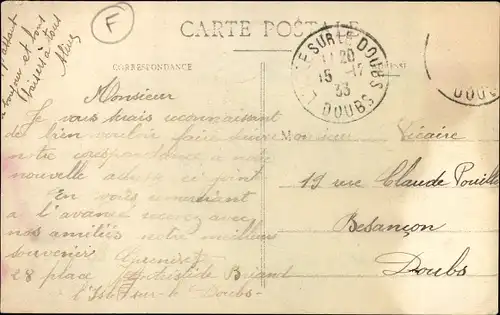 F
CARTE POSTALE
CORRESPONDANCE
SUR LE DOUBS
20
15 - 12
33
DOUBS
DOUBS
bons
baisers à tous
Monsieur
Je vous serais reconnaissant
de bien vouloir faire suivre
notre correspondance à notre
nouvelle adresse ci joint
En vous remerciant
à l'avance recevez avec
nos amitiés notre meilleur
souvenir
28 place Aristide Briand
l'Isle sur le Doubs
Monsieur Vicaire
19 rue Claude Pouillet
Besançon
Doubs